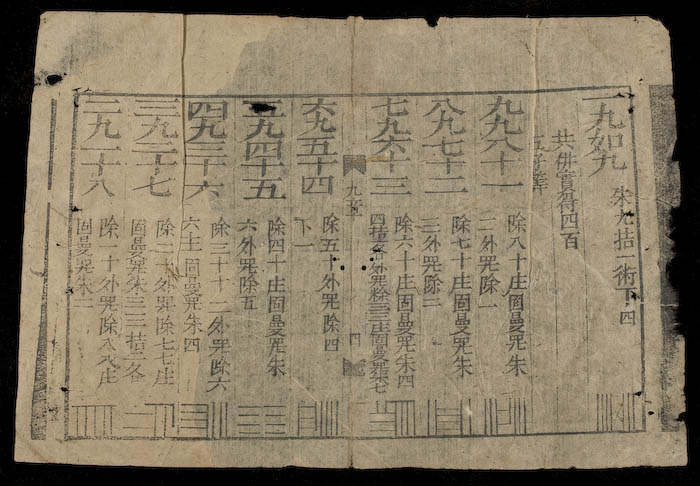 一九如九 朱九拮一術下四
共併實得四百
九九八十一
除八十庄固曼咒朱
二外咒除一
八九七十二
除七十庄固曼咒朱
三外咒除二
七九六十三
除六十庄固曼咒朱四
九章
六九五十四
除五十外咒除四
下
五九四十五
除四十庄固曼咒朱
六外咒除五
四九三十六
除三十外咒除六
固曼咒朱四
三九二十七
除二十外咒除七七庄
固曼咒朱三三拮三各
二九一十八
除一十外咒除八八庄
固曼咒朱一